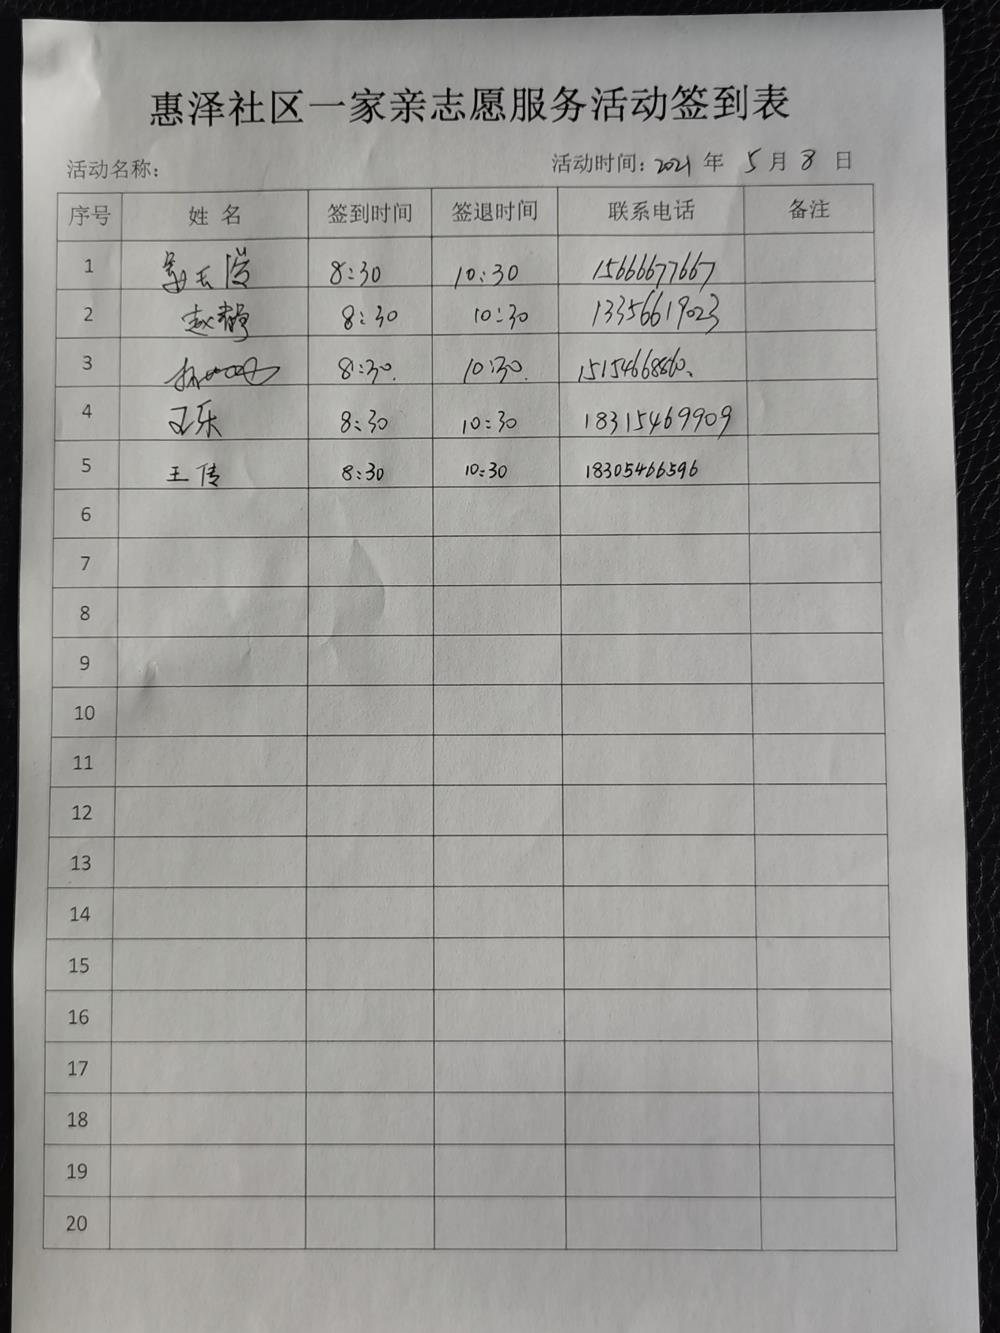 惠泽社区一家亲志愿服务活动签到表
活动名称: 活动时间: 2021 年 5 月 8 日
序号 姓 名 签到时间 签退时间 联系电话 备注
1 8:30 10:30 15666677667
2 赵静 8:30 10:30 13356619023
3 8:30. 10:30. 15154668860、
4 王乐 8:30 10:30 18315469909
5 王传 8:30 10:30 18305466596
6
7
8
9
10
11
12
13
14
15
16
17
18
19
20